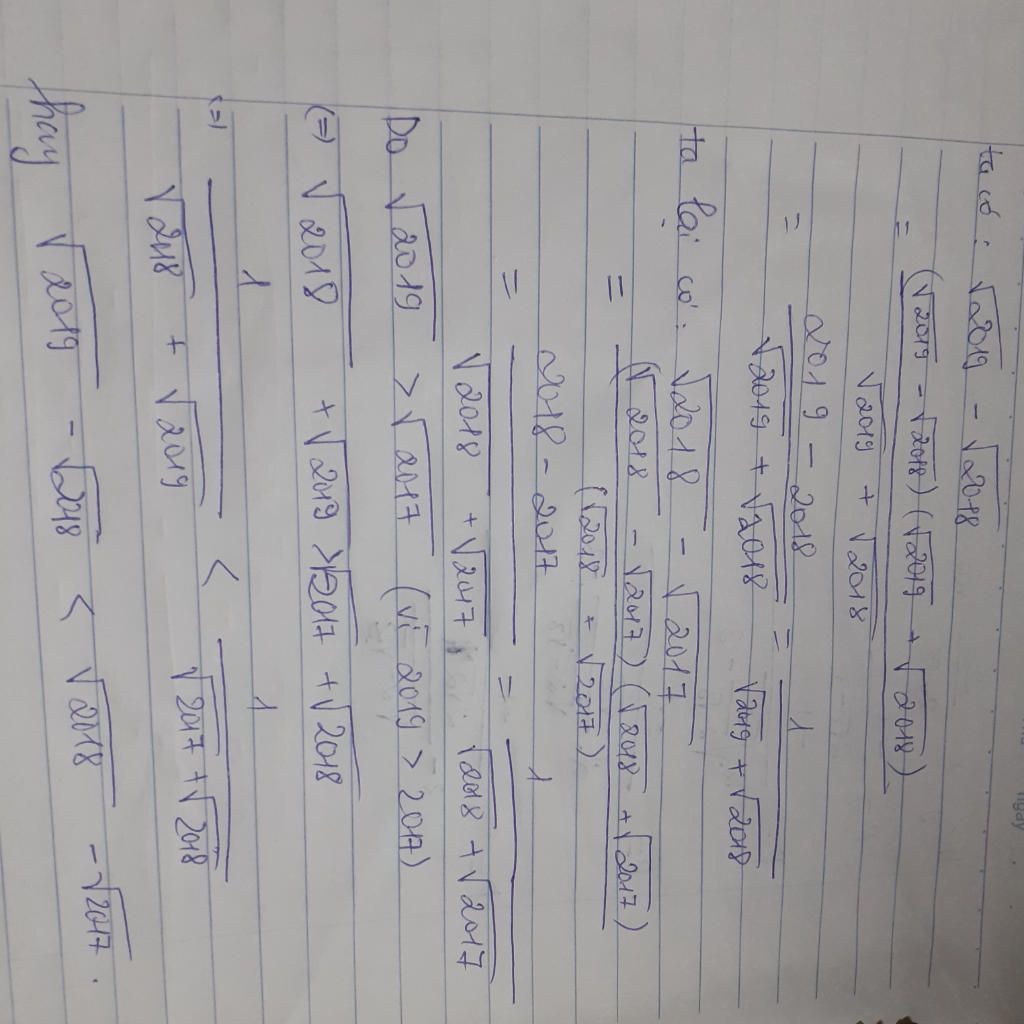 ngày
ta có : √2019 - √2018
= (√2019 - √2018)(√2019 + √2018)
√2019 + √2018
= 2019 - 2018 = 1
√2019 + √2018 √2019 + √2018
ta lại có : √2018 - √2017
= (√2018 - √2017)(√2018 + √2017)
(√2018 + √2017)
= 2018 - 2017 = 1
√2018 + √2017 √2018 + √2017
Do √2019 > √2017 (vì 2019 > 2017)
(=) √2018 + √2019 > √2017 + √2018
(=) 1 < 1
√2018 + √2019 √2017 + √2018
hay √2019 - √2018 < √2018 - √2017.